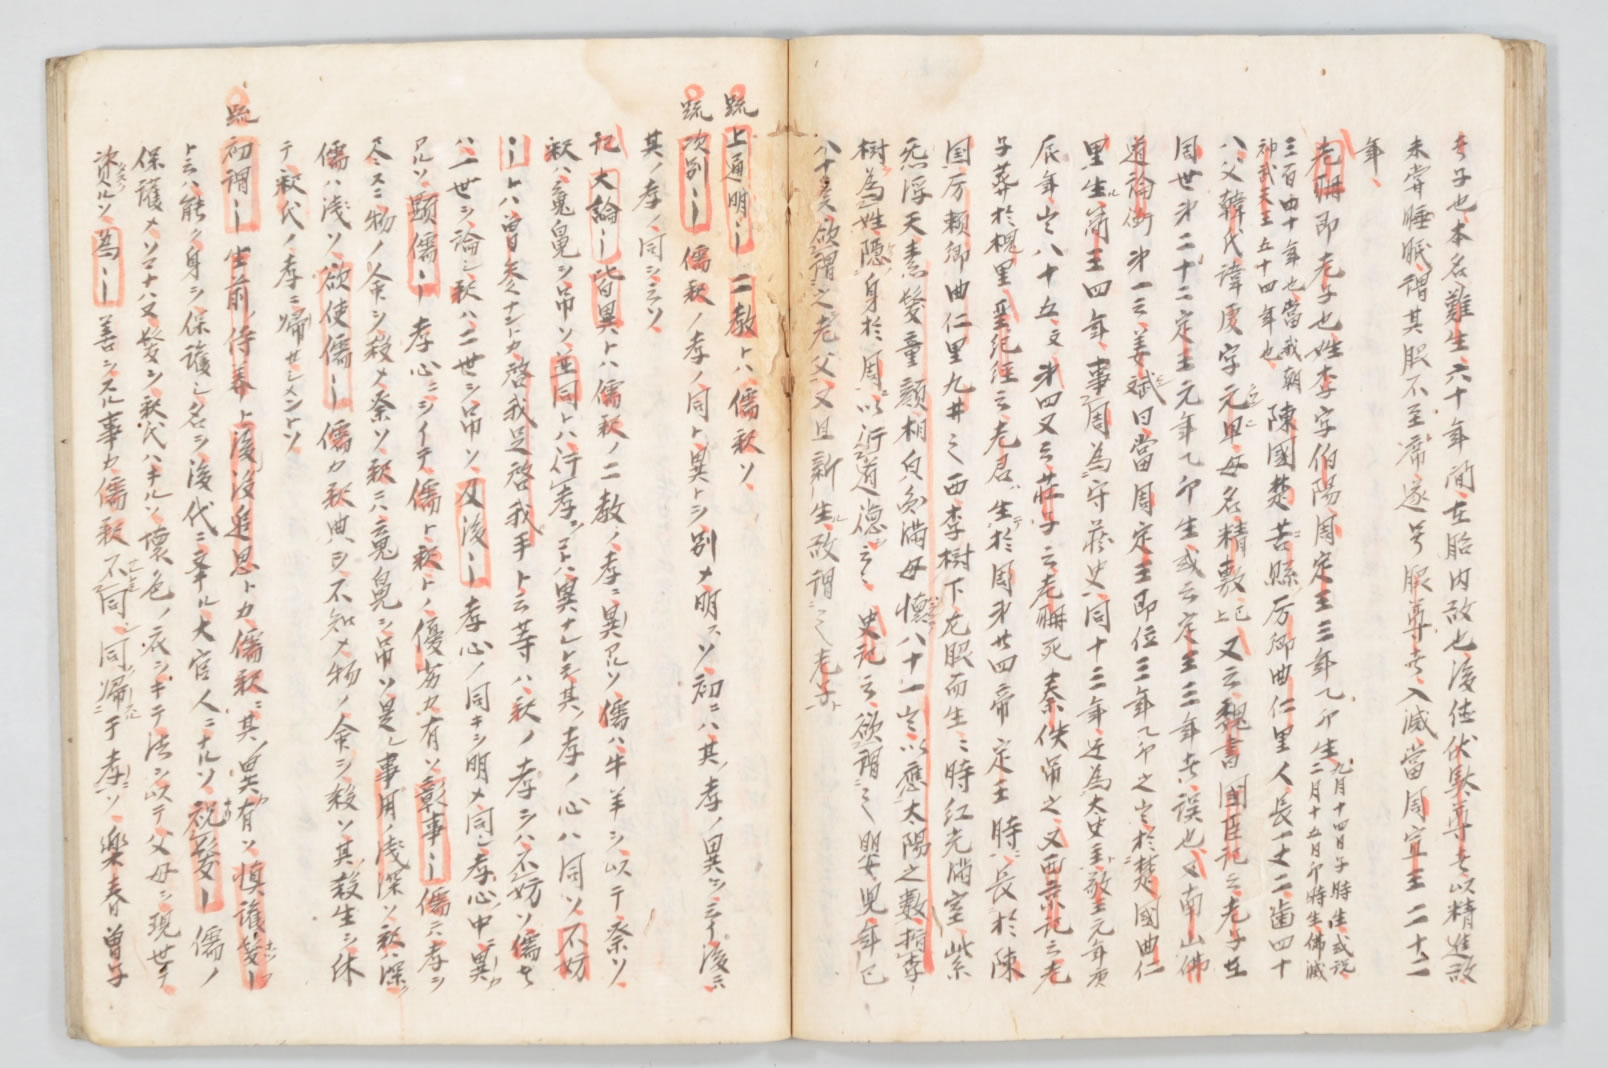 者子也本名難生六十年間在胎内故也後佐伏馱尊者以精進故
未嘗睡眠謂其脇不至席遂号脇尊者入滅當周宣王二十二
年
老聃即老子也姓李字伯陽周定王三年乙卯生九月十四日子時生或説二月十五日卯時生佛滅
三百四十年也當我朝神武天王五十四年也陳國楚苦縣厉卿曲仁里人長一丈二齒四十
八父韓氏諱虔字元卑母名精敷上記又云魏書国臣記云老子在
周世第二十二定王元年乙卯生或云定王三年者誤也又南山佛
道論衡第一云姜斌曰當周定王即位三年乙卯之歳於楚國曲仁
里生簡王四年事周為守蔵史同十三年迁為大史至敬王元年庚
辰年歳八十五文第四又云荘子云老聃死秦佚吊之又西京記云老
子葬於槐里聖紀經云老君生於周第廿四帝定王時長於陳
国厉頼卿曲仁里九井之西李樹下左腋而生生時紅光満室紫
炁浮天素髮童顔相白具満母懐八十一歳以應太陽之數指李
樹為姓隠身於周以行道徳云云史記云欲謂之嬰児年已
八十矣欲謂之老父又且新生故謂之老子
疏上通明〡二教トハ儒釈ソ
疏次別〡儒釈ノ孝ノ同ト異トシ別メ明スソ初ニハ其ノ孝ノ異ヲ云イ後ニハ
其ノ孝ノ同シ云ソ
記大論〡皆異トハ儒釈ノ二教ノ孝ニ異アルソ儒ハ牛羊シ以テ祭ソ
釈ハ冤鬼シ吊ソ並同トハ行孝ヿハ異ナレトモ其ノ孝ノ心ハ同ソ不妨
〡トハ曽參ナントカ啓我足啓我手ト云等ハ釈ノ孝シハ不妨ソ儒モ
ハ一世シ論シ釈ハ二世シ吊ソ又後〡孝心ノ同キシ明メ同シ孝心中ニ異
アルソ顕儒〡孝心ニヲイテ儒ト釈トノ優劣カ有ソ彰事〡儒ニハ孝シ
尽スニ物ノ命シ殺メ祭ソ釈ニハ冤鬼シ吊ソ是レ事用ノ浅深ソ釈ハ深
儒ハ浅ソ欲使儒〡儒カ釈典シ不知メ物ノ命シ殺ソ其殺生シ休
テ釈氏ノ孝ニ帰セシメントソ
疏初謂〡生前ノ侍養ト没後追思トカ儒釈ニ其ノ異有ソ慎護髪〡
ト云ハ能ク身シ保護シ名シ後代ニ挙ル大官人ニナルソ祝髪〡儒ノ
保護メソロナハヌ髪シ釈氏ハキルソ壊色ノ衣シキテ法シ以テ父母シ現世テ
資クルソ為〡善シスル事カ儒釈不同同帰于孝ソ樂春曽子